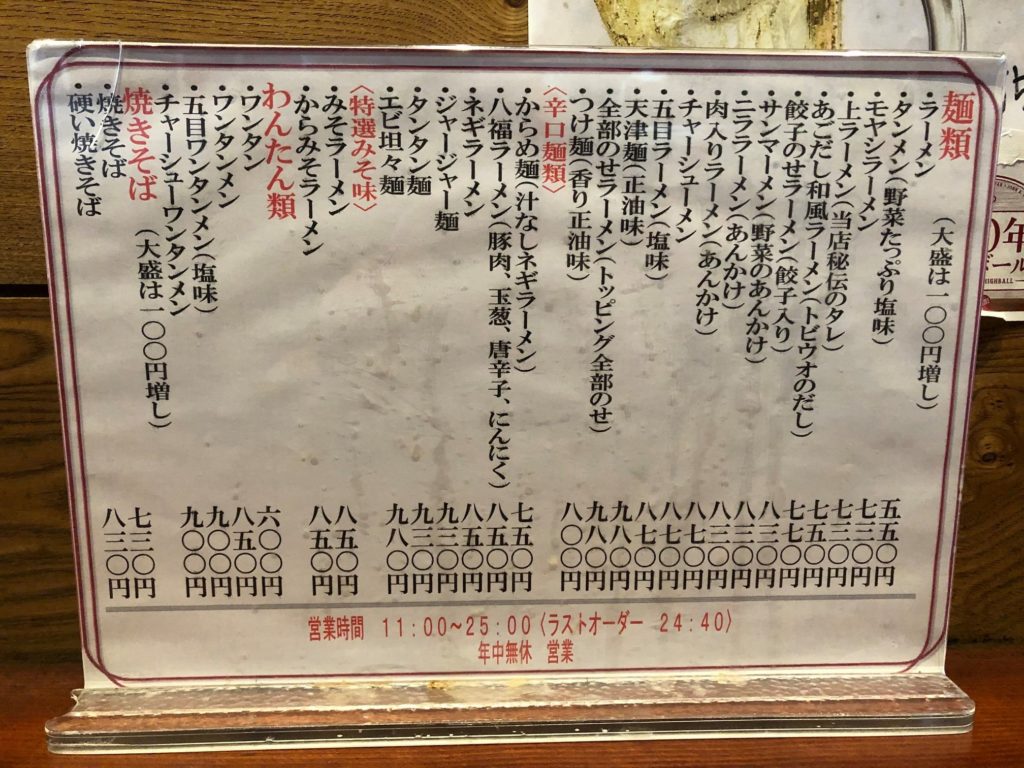 麺類 (大盛は一〇〇円増し)
・ラーメン 五五〇円
・タンメン(野菜たっぷり塩味) 七三〇円
・モヤシラーメン 七三〇円
・上ラーメン(当店秘伝のタレ) 七五〇円
・あごだし和風ラーメン(トビウオのだし) 七七〇円
・餃子のせラーメン(餃子入り) 八三〇円
・サンマーメン(野菜のあんかけ) 八三〇円
・ニララーメン(あんかけ) 八三〇円
・肉入りラーメン(あんかけ) 八七〇円
・チャーシューメン 八七〇円
・五目ラーメン(塩味) 八七〇円
・天津麺(正油味) 九八〇円
・全部のせラーメン(トッピング全部のせ) 九八〇円
・つけ麺(香り正油味) 八〇〇円
〈辛口麺類〉
・からめ麺(汁なしネギラーメン) 七五〇円
・八福ラーメン(豚肉、玉葱、唐辛子、にんにく) 八五〇円
・ネギラーメン 八五〇円
・ジャージャー麺 九三〇円
・タンタン麺 九三〇円
・エビ坦々麺 九八〇円
〈特選みそ味〉
・みそラーメン 八五〇円
・からみそラーメン 八五〇円
わんたん類
・ワンタン 六〇〇円
・ワンタンメン 八五〇円
・五目ワンタンメン(塩味) 九〇〇円
・チャーシューワンタンメン 九〇〇円
焼きそば (大盛は一〇〇円増し)
・焼きそば 七三〇円
・硬い焼きそば 八三〇円
営業時間 11:00~25:00〈ラストオーダー 24:40〉
年中無休 営業